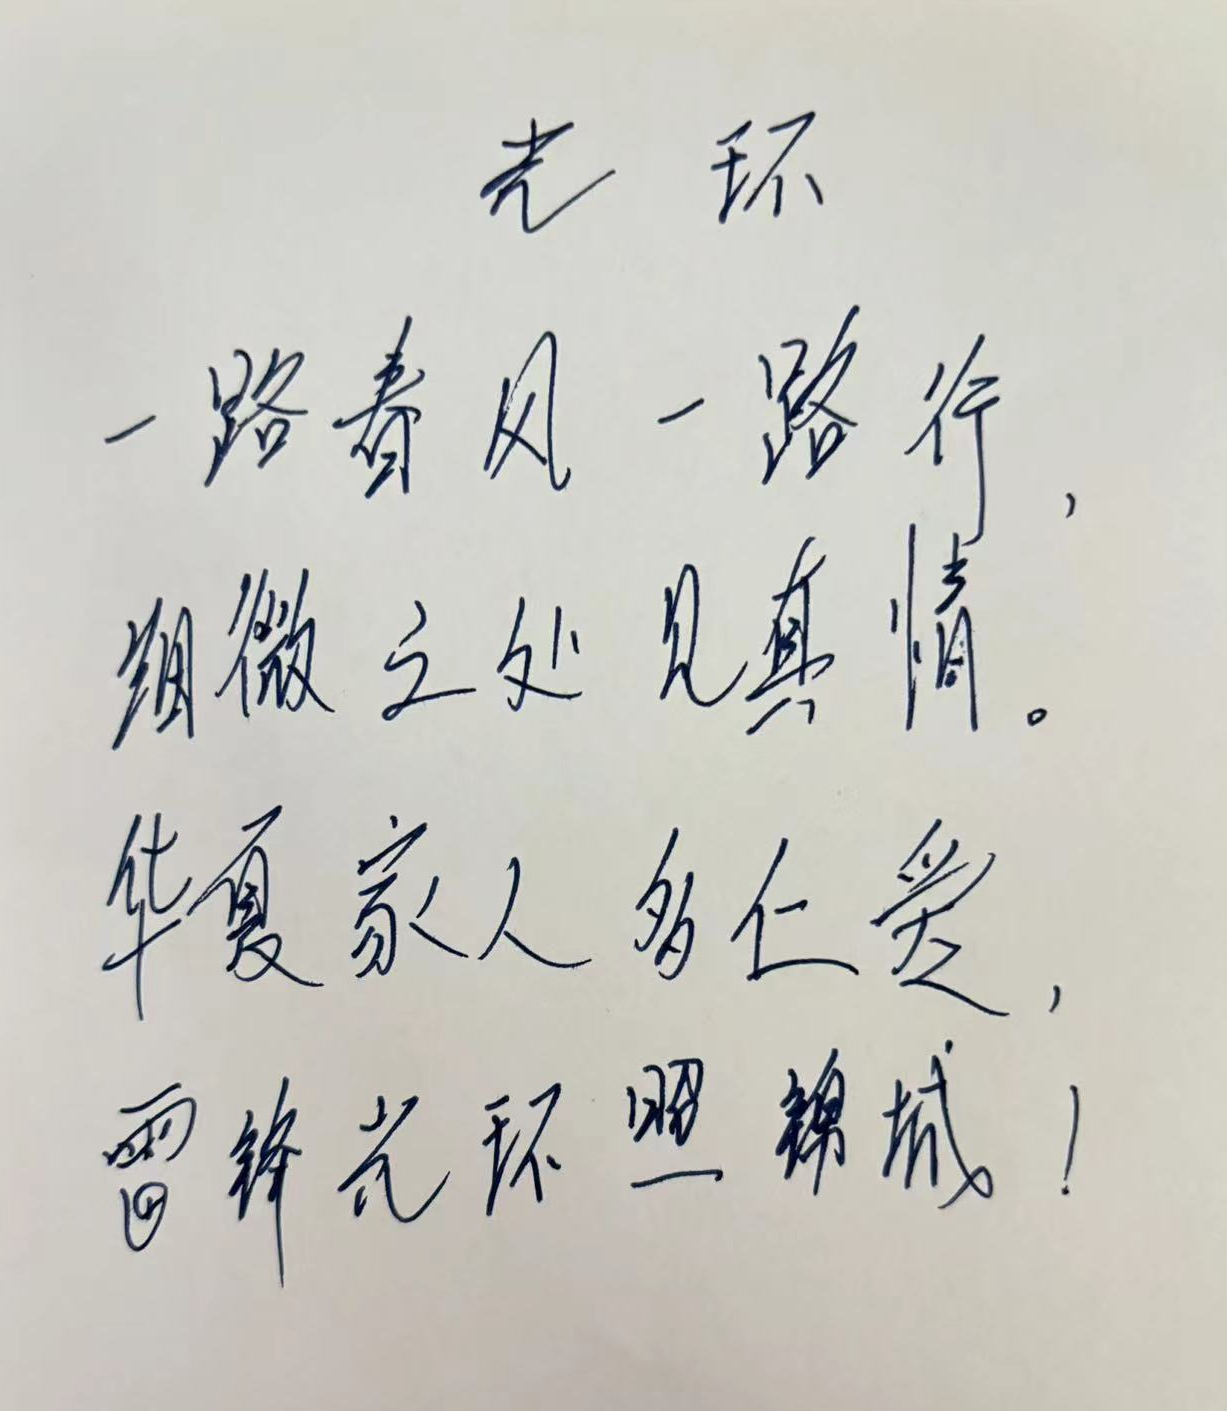 光环
一路春风一路行，
细微之处见真情。
华夏家人多仁爱，
雷锋光环照锦城！